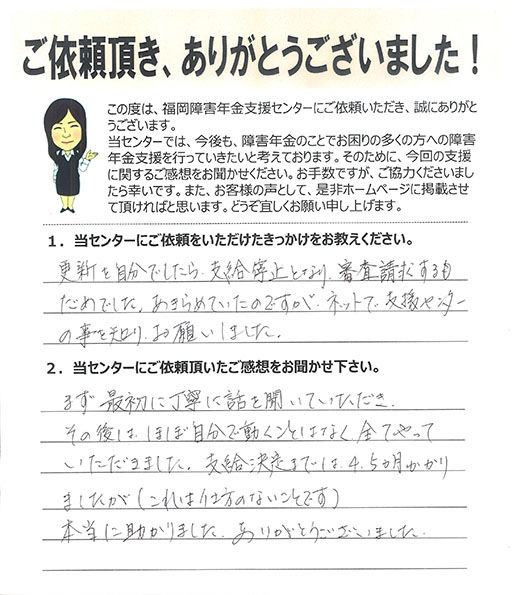 ご依頼頂き、ありがとうございました！
この度は、福岡障害年金支援センターにご依頼いただき、誠にありがと
うございます。
当センターでは、今後も、障害年金のことでお困りの多くの方への障害
年金支援を行っていきたいと考えております。そのために、今回の支援
に関するご感想をお聞かせください。お手数ですが、ご協力くださいまし
たら幸いです。また、お客様の声として、是非ホームページに掲載させ
て頂ければと思います。どうぞ宜しくお願い申し上げます。
１．当センターにご依頼をいただけたきっかけをお教えください。
更新を自分でしたら、支給停止となり、審査請求するも
だめでした。あきらめていたのですが、ネットで、支援センター
の事を知り、お願いしました。
２．当センターにご依頼頂いたご感想をお聞かせ下さい。
まず最初に丁寧に話を聞いていただき、
その後は、ほぼ自分で動くことはなく全てやって
いただきました。支給決定までは４、５ヵ月かかり
ましたが（これは仕方のないことです）
本当に助かりました。ありがとうございました。